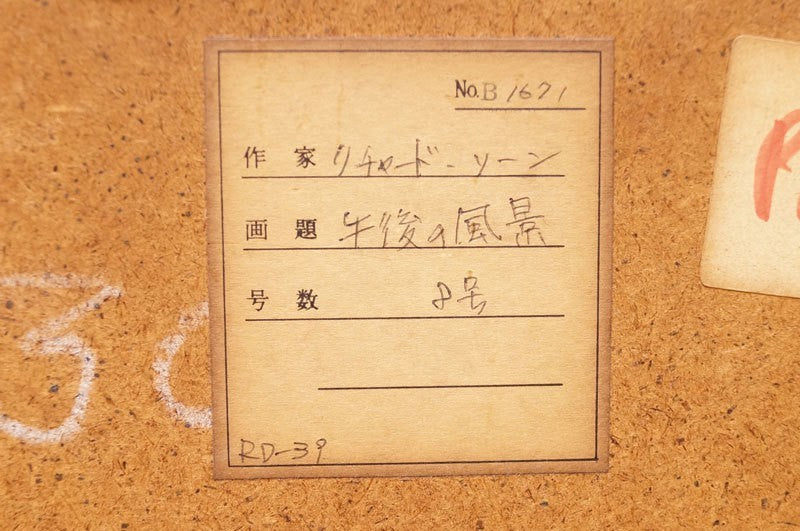 No. B 1671
作家 リチャード・ソーン
画題 午後の風景
号数 8号
RD-39
30